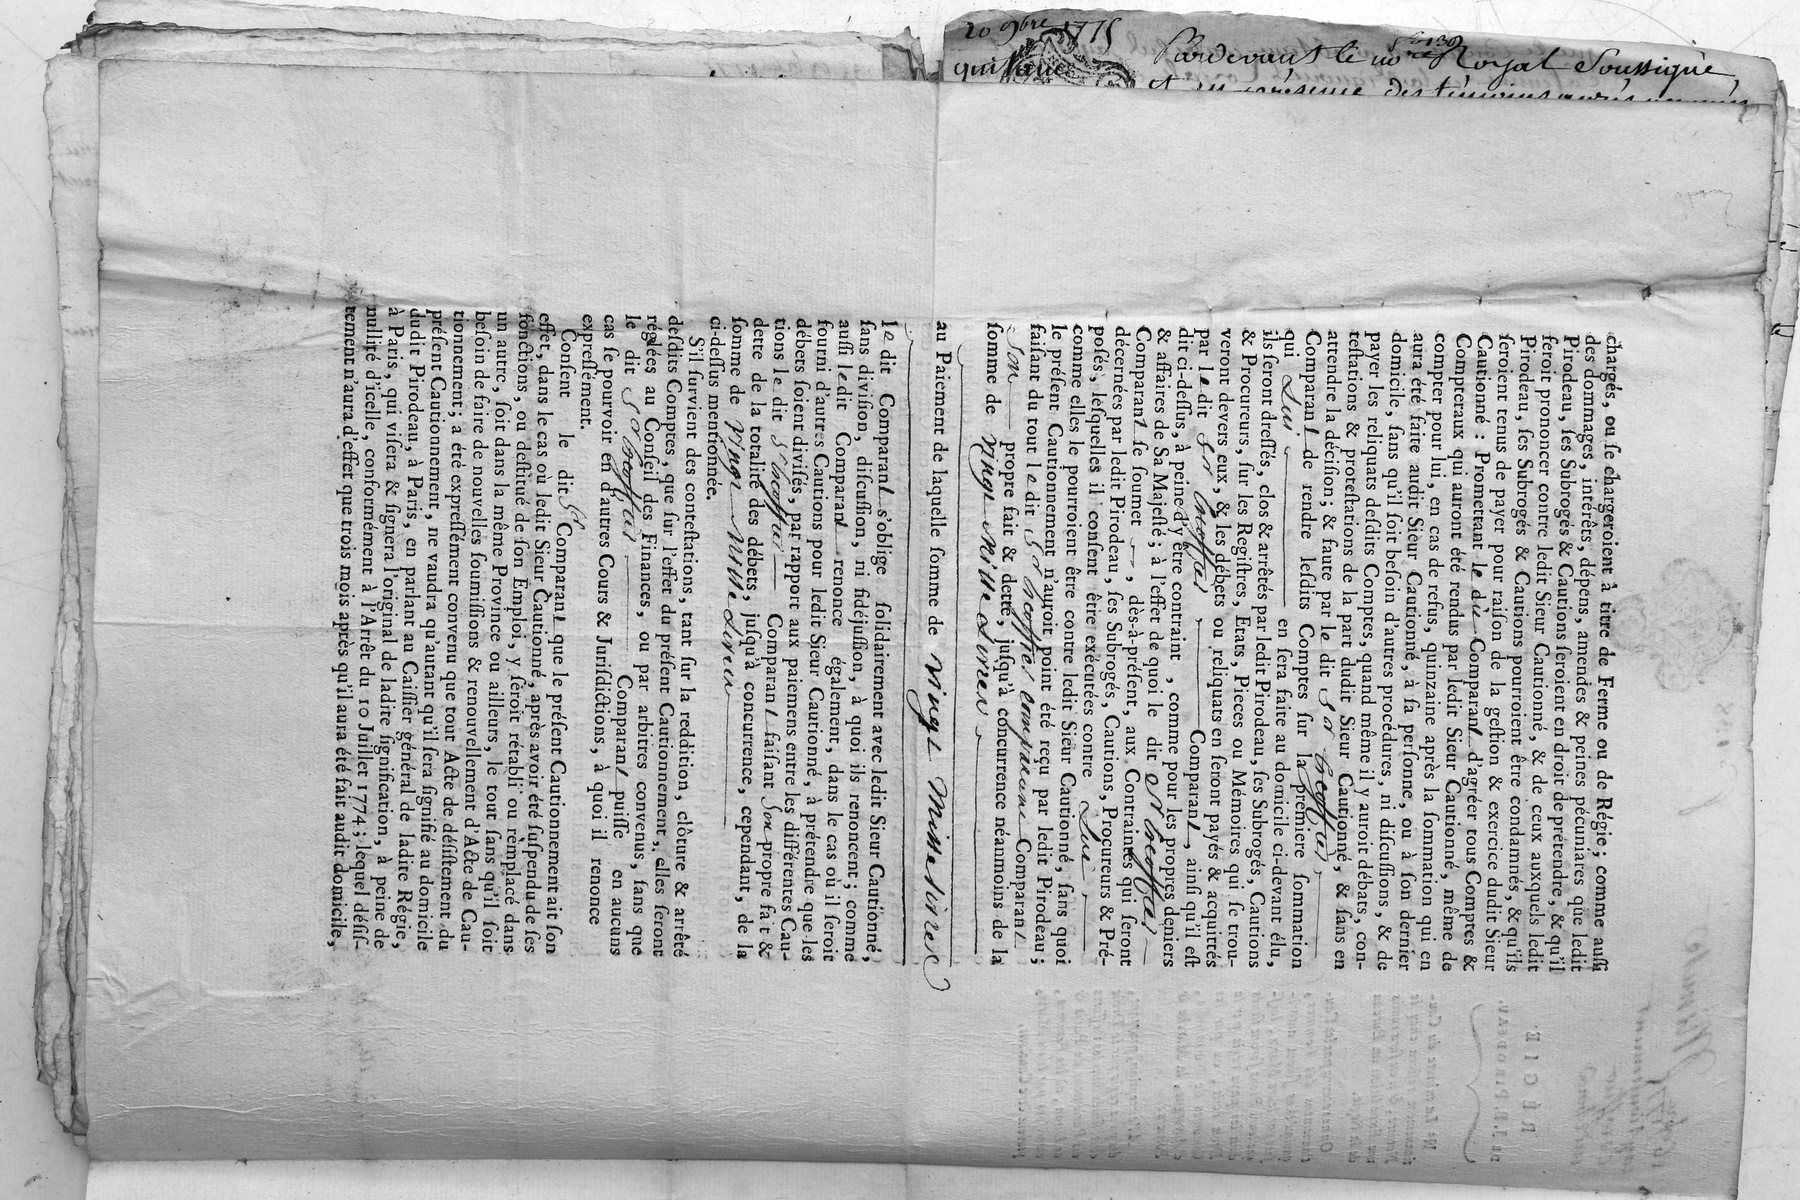 20 9bre 1775
quittance
Pardevant le no.re Royal Soussigné
et en présence des témoins
chargés, ou ſe chargeroient à titre de Ferme ou de Régie; comme auſſi
des dommages, intérêts, dépens, amendes & peines pécuniares que ledit
Pirodeau, ſes Subrogés & Cautions ſeroient en droit de prétendre, & qu'il
feroit prononcer contre ledit Sieur Cautionné, & de ceux auxquels ledit
Pirodeau, ſes Subrogés & Cautions pourroient être condamnés, & qu'ils
ſeroient tenus de payer pour raiſon de la geſtion & exercice dudit Sieur
Cautionné: Promettant le du Comparant d'agréer tous Comptes &
Compteraux qui auront été rendus par ledit Sieur Cautionné, même de
compter pour lui, en cas de refus, quinzaine après la ſommation qui en
aura été faite audit Sieur Cautionné, à ſa perſonne, ou à ſon dernier
domicile, ſans qu'il ſoit beſoin d'autres procédures, ni diſcuſſions, & de
payer les reliquats deſdits Comptes, quand même il y auroit débats, con-
teſtations & proteſtations de la part dudit Sieur Cautionné, & ſans en
attendre la déciſion; & faute par le dit Sr
Comparant de rendre leſdits Comptes ſur la premiere ſommation
qui Lui en ſera faite au domicile ci-devant élu,
ils ſeront dreſſés, clos & arrêtés par ledit Pirodeau, ſes Subrogés, Cautions
& Procureurs, ſur les Regiſtres, Etats, Pieces ou Mémoires qui ſe trou-
veront devers eux, & les débets ou reliquats en ſeront payés & acquittés
par le dit Sr Comparant, ainſi qu'il eſt
dit ci-deſſus, à peine d'y être contraint, comme pour les propres deniers
& affaires de Sa Majeſté; à l'effet de quoi le dit Sr
Comparant ſe ſoumet, dès-à-préſent, aux Contraintes qui ſeront
décernées par ledit Pirodeau, ſes Subrogés, Cautions, Procureurs & Pré-
poſés, leſquelles il conſent être exécutées contre Lui,
comme elles le pourroient être contre ledit Sieur Cautionné, ſans quoi
le préſent Cautionnement n'auroit point été reçu par ledit Pirodeau;
faiſant du tout le dit Sr Comparant
Son propre fait & dette, juſqu'à concurrence néanmoins de la
ſomme de vingt mille Livres
au Paiement de laquelle ſomme de vingt Mille Livres
le dit Comparant s'oblige ſolidairement avec ledit Sieur Cautionné,
ſans diviſion, diſcuſſion, ni fidéjuſſion, à quoi ils renoncent; comme
auſſi le dit Comparant renonce également, dans le cas où il ſeroit
fourni d'autres Cautions pour ledit Sieur Cautionné, à prétendre que les
débets ſoient diviſés, par rapport aux paiemens entre les différentes Cau-
tions le dit S Comparant faiſant Son propre fait &
dette de la totalité des débets, juſqu'à concurrence, cependant, de la
ſomme de vingt Mille Livres
ci-deſſus mentionnée.
S'il ſurvient des conteſtations, tant ſur la reddition, clôture & arrêté
deſdits Comptes, que ſur l'effet du préſent Cautionnement, elles ſeront
réglées au Conſeil des Finances, ou par arbitres convenus, ſans que
le dit Sr Comparant puiſſe en aucuns
cas ſe pourvoir en d'autres Cours & Juriſdictions, à quoi il renonce
expreſſément.
Conſent le dit Sr Comparant que le préſent Cautionnement ait ſon
effet, dans le cas où ledit Sieur Cautionné, après avoir été ſuſpendu de ſes
fonctions, ou deſtitué de ſon Emploi, y ſeroit rétabli ou remplacé dans
un autre, ſoit dans la même Province ou ailleurs, le tout ſans qu'il ſoit
beſoin de faire de nouvelles ſoumiſſions & renouvellement d'Acte de Cau-
tionnement; a été expreſſément convenu que tout Acte de déſiſtement du
préſent Cautionnement, ne vaudra qu'autant qu'il ſera ſignifié au domicile
dudit Pirodeau, à Paris, en parlant au Caiſſier général de ladite Régie,
à Paris, qui viſera & ſignera l'original de ladite ſignification, à peine de
nullité d'icelle, conformément à l'Arrêt du 10 Juillet 1774; lequel déſiſ-
tement n'aura d'effet que trois mois après qu'il aura été fait audit domicile,